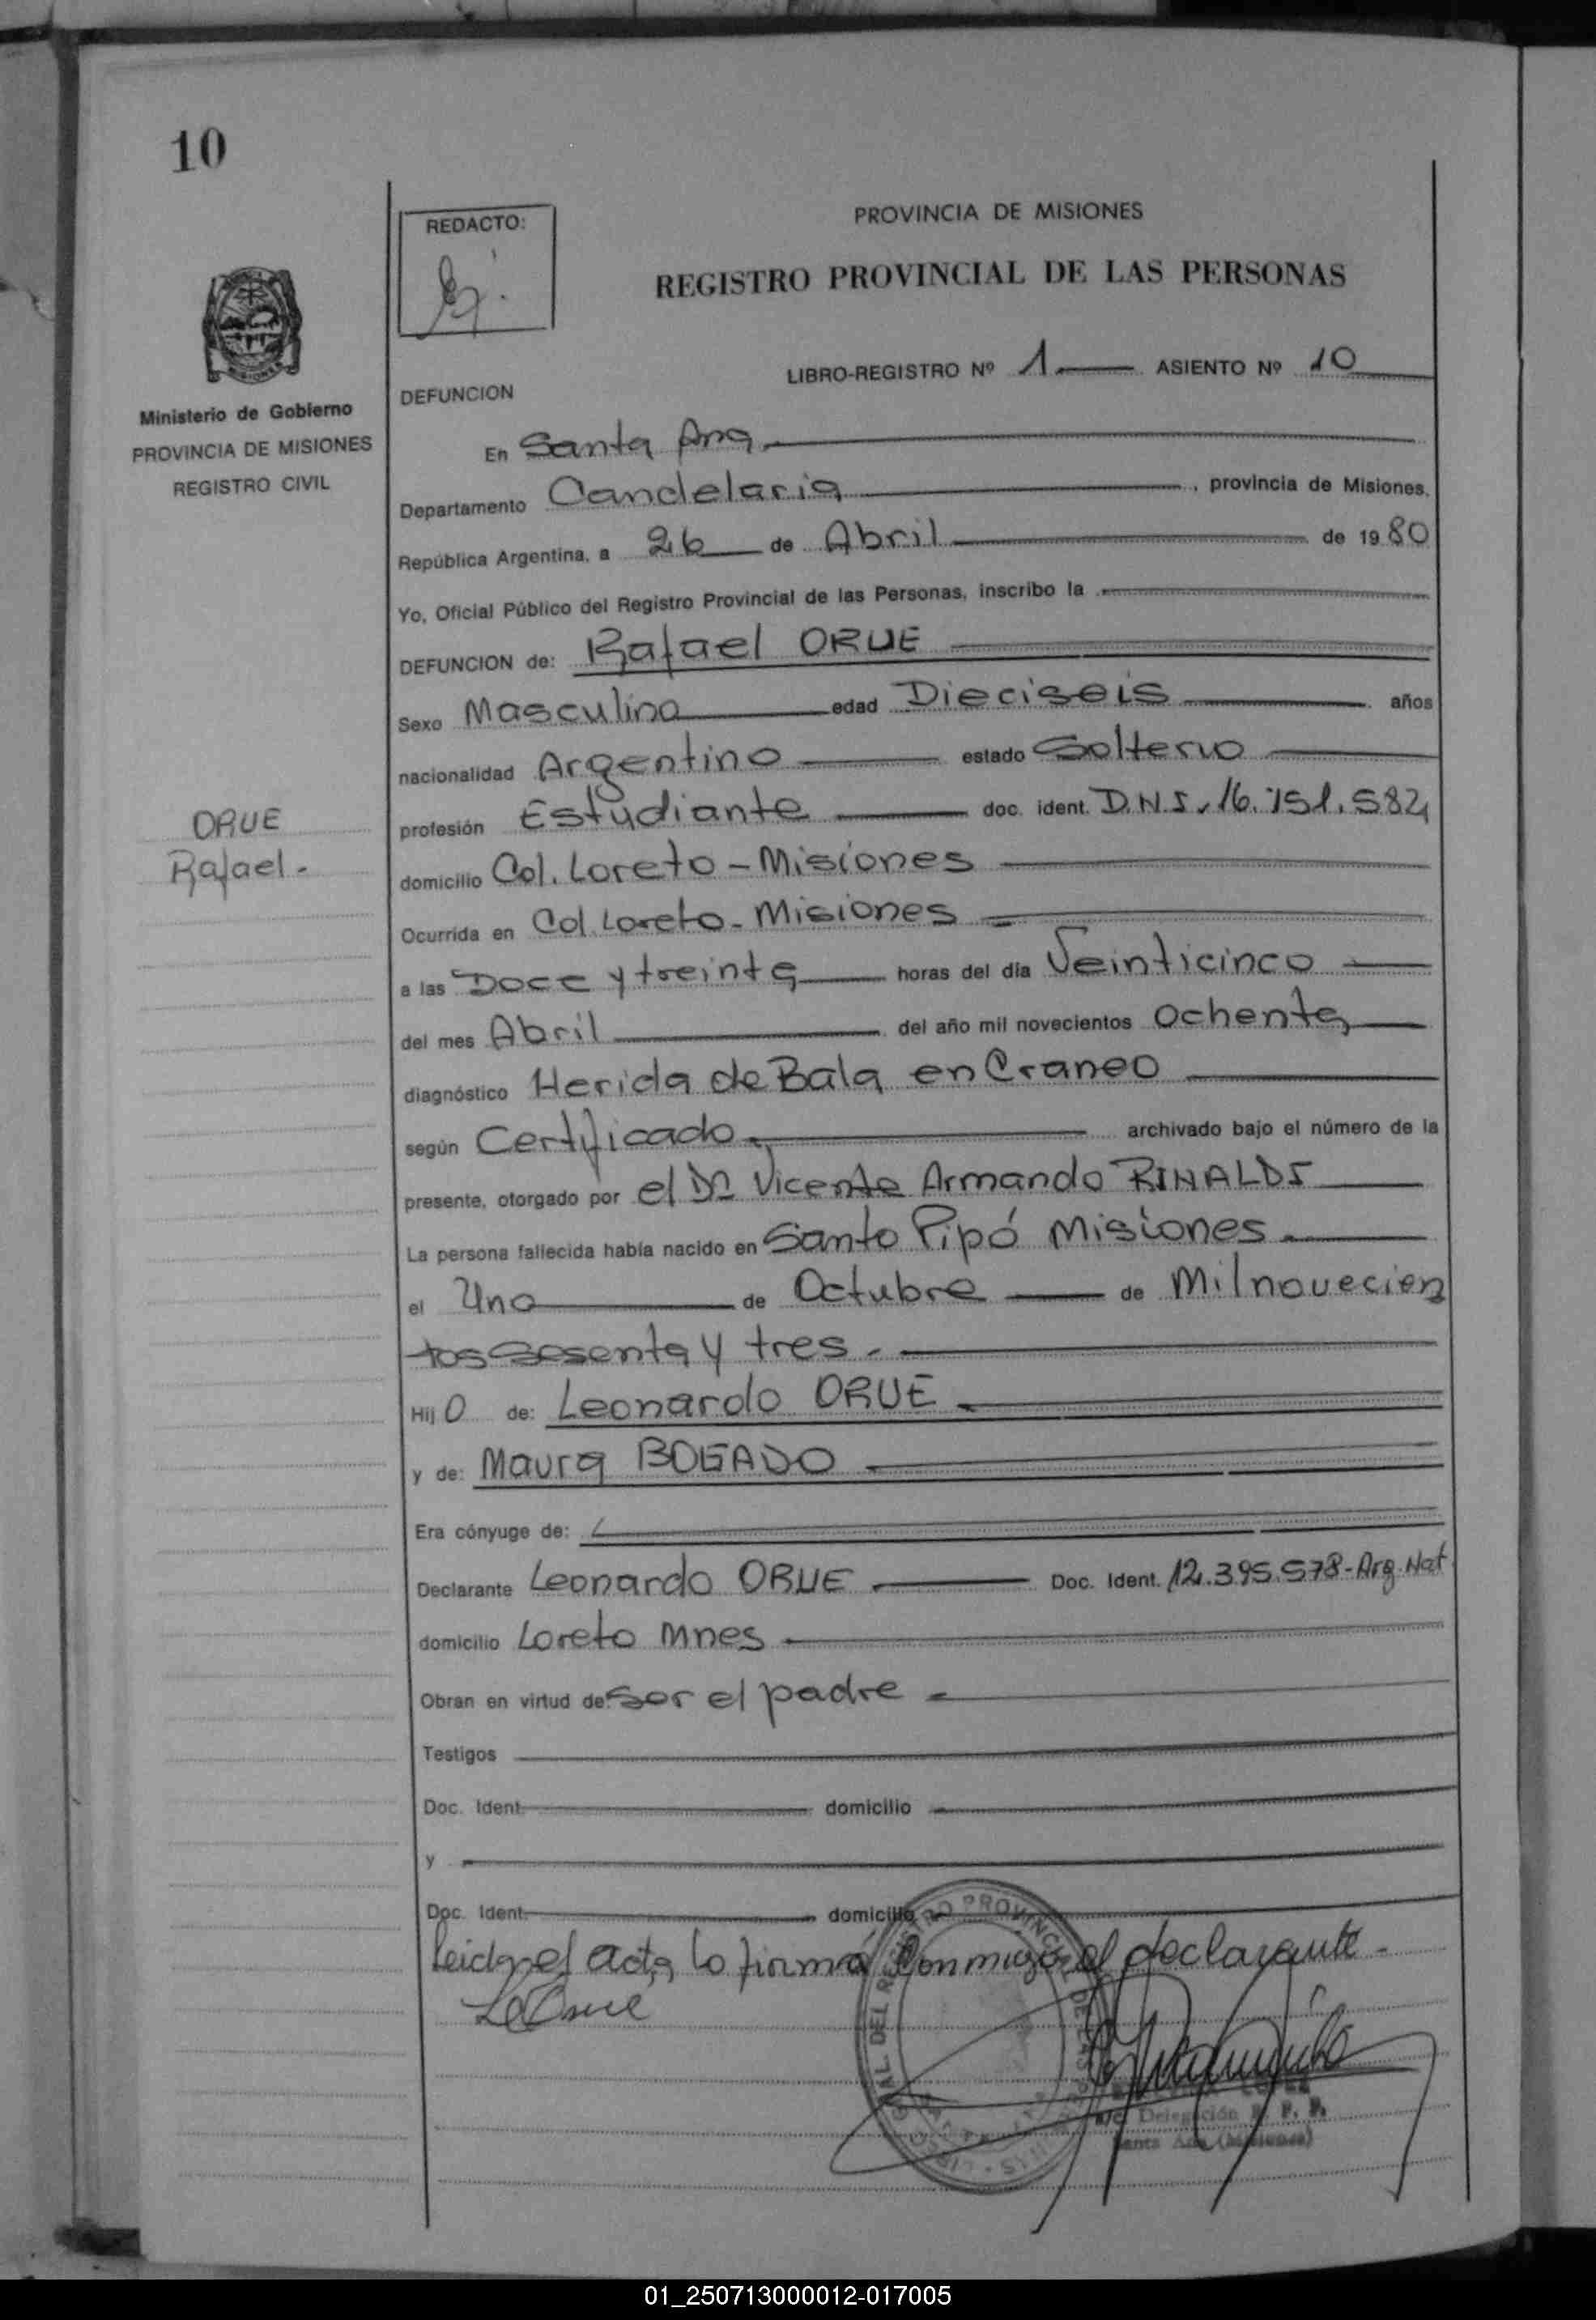 10
REDACTO:
PROVINCIA DE MISIONES
REGISTRO PROVINCIAL DE LAS PERSONAS
Ministerio de Gobierno
PROVINCIA DE MISIONES
REGISTRO CIVIL
LIBRO-REGISTRO Nº 1 ASIENTO Nº 10
DEFUNCION
En Santa Ana
Departamento Candelaria, provincia de Misiones,
República Argentina, a 26 de Abril de 1980
Yo, Oficial Público del Registro Provincial de las Personas, inscribo la
DEFUNCION de: Rafael ORUE
Sexo Masculino edad Dieciseis años
nacionalidad Argentino estado Soltero
ORUE
Rafael.-
profesión Estudiante doc. ident. D.N.I. 16.751.582
domicilio Col. Loreto - Misiones
Ocurrida en Col. Loreto - Misiones
a las Doce y treinta horas del día Veinticinco
del mes Abril del año mil novecientos Ochenta
diagnóstico Herida de Bala en Craneo
según Certificado archivado bajo el número de la
presente, otorgado por el Dr Vicente Armando RINALDI
La persona fallecida había nacido en Santo Pipó Misiones.
el Uno de Octubre de Milnovecien
tos Sesenta y tres.
Hijo de: Leonardo ORUE
y de: Maura BOGADO
Era cónyuge de:
Declarante Leonardo ORUE Doc. Ident. 12.395.578-Arg.Nat.
domicilio Loreto Mnes
Obran en virtud de: Ser el padre
Testigos
Doc. Ident. domicilio
y
Doc. Ident. domicilio
Leida el acta, lo firma Conmigo el declarante.
L Orue
Delegación R. P. P.
Santa Ana (Misiones)
01_250713000012-017005